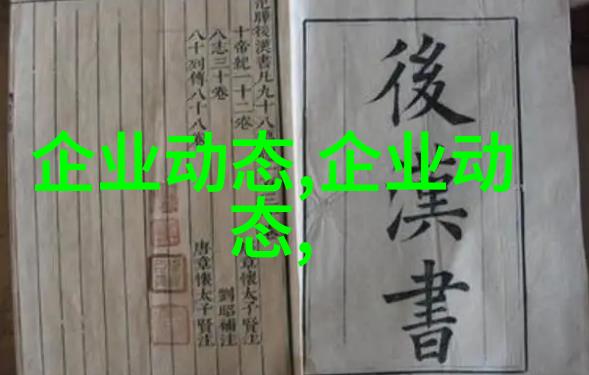 後漢書
范曄後漢書凡九十八
十帝紀一十二卷
八志三十卷
八十列傳八十八卷
唐章懷太子賢注
劉昭補注
章懷太子賢注
企业动态,企业动
态,